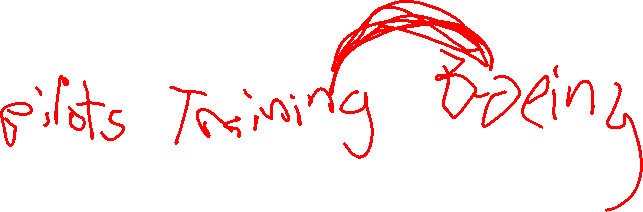 pilots Training Boeing